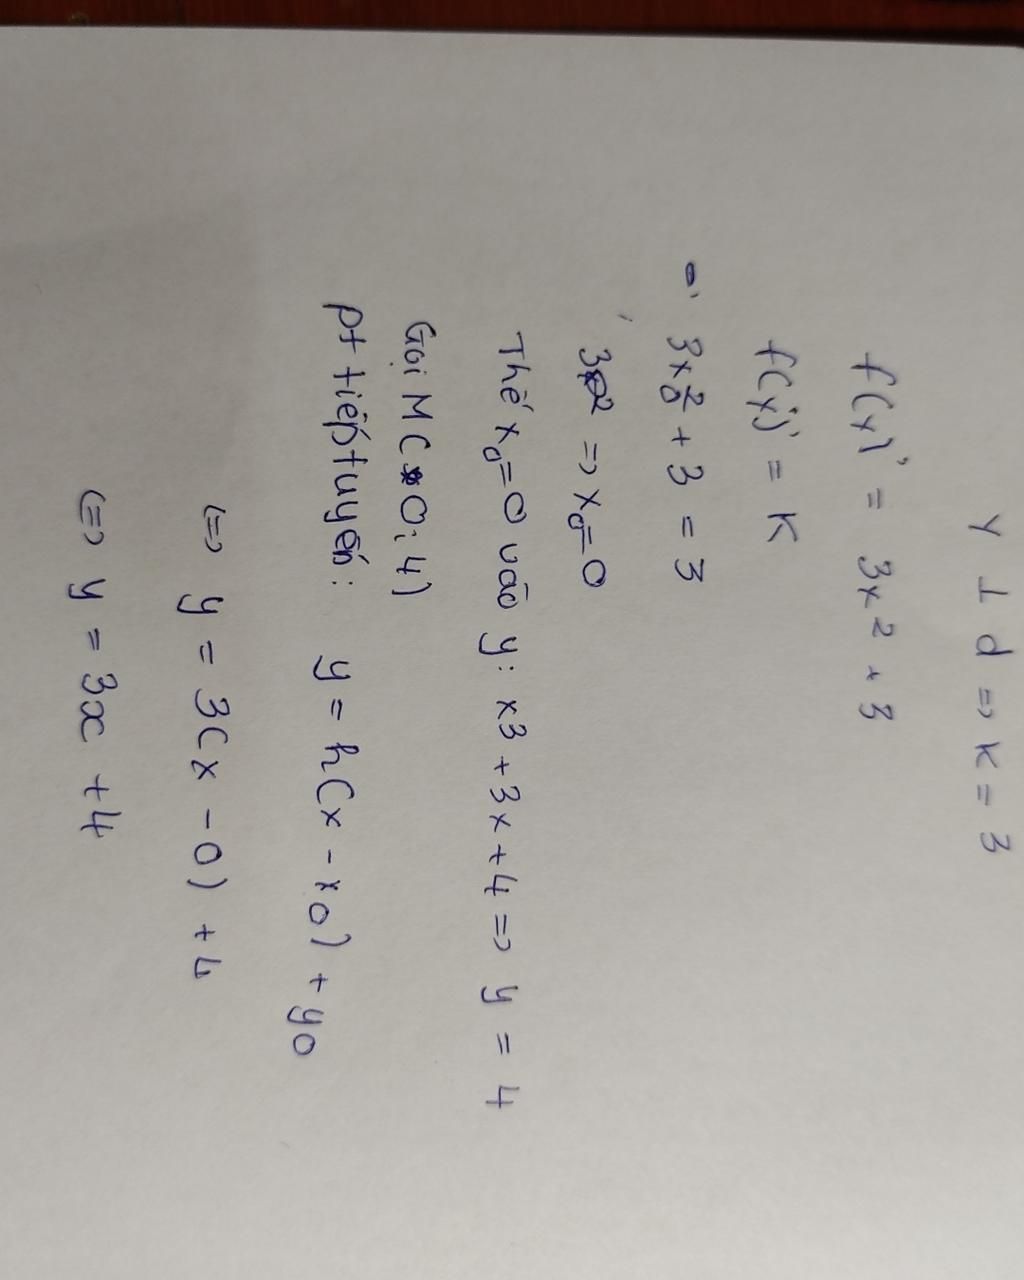 Y ⊥ d => K = 3
f(x)' = 3x² + 3
f(x)' = K
3x₀² + 3 = 3
=> x₀=0
Thế x₀=0 vào y: x3 + 3x + 4 => y = 4
Gọi M (0; 4)
pt tiếp tuyến: y = h(x - x0) + y0
<=> y = 3(x - 0) + 4
<=> y = 3x + 4